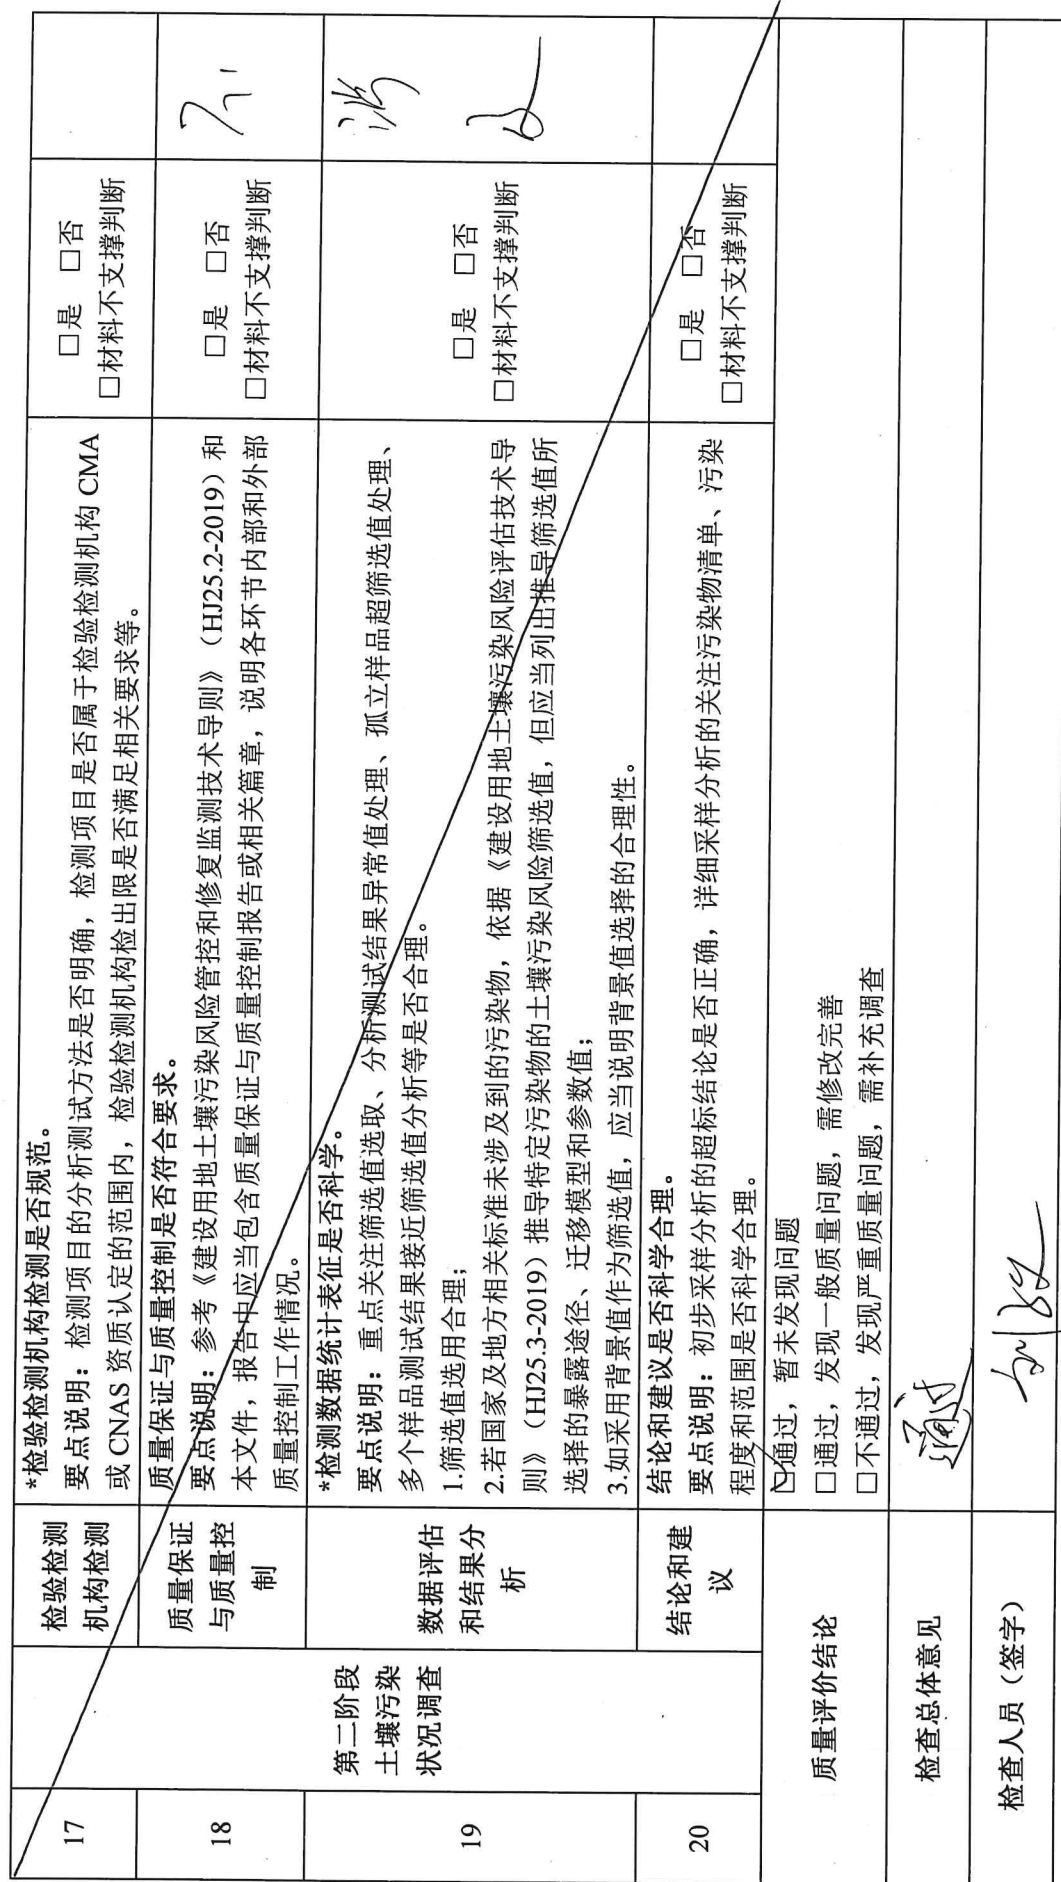 17
第二阶段
土壤污染
状况调查
检验检测
机构检测
*检验检测机构检测是否规范。
要点说明：检测项目的分析测试方法是否明确，检测项目是否属于检验检测机构 CMA
或 CNAS 资质认定的范围内，检验检测机构检出限是否满足相关要求等。
□是 □否
□材料不支撑判断
18
质量保证
与质量控
制
质量保证与质量控制是否符合要求。
要点说明：参考《建设用地土壤污染风险管控和修复监测技术导则》（HJ25.2-2019）和
本文件，报告中应当包含质量保证与质量控制报告或相关篇章，说明各环节内部和外部
质量控制工作情况。
□是 □否
□材料不支撑判断
19
数据评估
和结果分
析
*检测数据统计表征是否科学。
要点说明：重点关注筛选值选取、分析测试结果异常值处理、孤立样品超筛选值处理、
多个样品测试结果接近筛选值分析等是否合理。
1.筛选值选用合理；
2.若国家及地方相关标准未涉及到的污染物，依据《建设用地土壤污染风险评估技术导
则》（HJ25.3-2019）推导特定污染物的土壤污染风险筛选值，但应当列出推导筛选值所
选择的暴露途径、迁移模型和参数值；
3.如采用背景值作为筛选值，应当说明背景值选择的合理性。
□是 □否
□材料不支撑判断
20
结论和建
议
结论和建议是否科学合理。
要点说明：初步采样分析的超标结论是否正确，详细采样分析的关注污染物清单、污染
程度和范围是否科学合理。
□是 □否
□材料不支撑判断
质量评价结论
☑通过，暂未发现问题
□通过，发现一般质量问题，需修改完善
□不通过，发现严重质量问题，需补充调查
检查总体意见
通过
检查人员（签字）